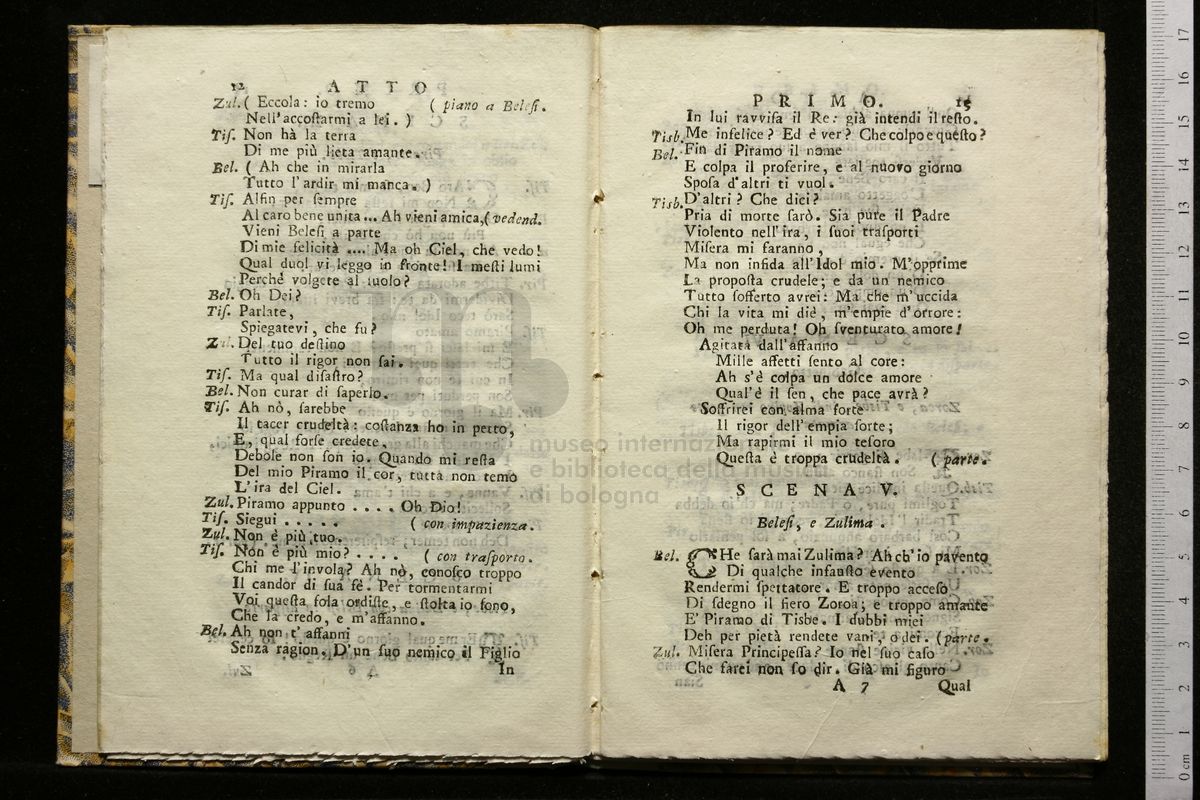 12 ATTO
Zul. ( Eccola: io tremo ( piano a Belesi.
Nell'accostarmi a lei. )
Tis. Non hà la terra
Di me più lieta amante.
Bel. ( Ah che in mirarla
Tutto l'ardir mi manca. )
Tis. Alfin per sempre
Al caro bene unita ... Ah vieni amica, ( vedend.
Vieni Belesi a parte
Di mie felicità .... Ma oh Ciel, che vedo!
Qual duol vi leggo in fronte! I mesti lumi
Perchè volgete al suolo?
Bel. Oh Dei?
Tis. Parlate,
Spiegatevi, che fu?
Zul. Del tuo destino
Tutto il rigor non sai.
Tis. Ma qual disastro?
Bel. Non curar di saperlo.
Tis. Ah nò, sarebbe
Il tacer crudeltà: costanza ho in petto,
E, qual forse credete,
Debole non son io. Quando mi resta
Del mio Piramo il cor, tutta non temo
L'ira del Ciel.
Zul. Piramo appunto .... Oh Dio!
Tis. Siegui ..... ( con impazienza.
Zul. Non è più tuo.
Tis. Non è più mio? .... ( con trasporto.
Chi me l'invola? Ah nò, conosco troppo
Il candor di sua fè. Per tormentarmi
Voi questa fola ordiste, e stolta io sono,
Che la credo, e m'affanno.
Bel. Ah non t'affanni
Senza ragion. D'un suo nemico il Figlio
In
PRIMO. 15
In lui ravvisa il Re: già intendi il resto.
Tisb. Me infelice? Ed è ver? Che colpo e questo?
Bel. Fin di Piramo il nome
E colpa il proferire, e al nuovo giorno
Sposa d'altri ti vuol.
Tisb. D'altri? Che dici?
Pria di morte sarò. Sia pure il Padre
Violento nell'ira, i suoi trasporti
Misera mi faranno,
Ma non infida all'Idol mio. M'opprime
La proposta crudele; e da un nemico
Tutto sofferto avrei: Ma che m'uccida
Chi la vita mi diè, m'empie d'orrore:
Oh me perduta! Oh sventurato amore!
Agitata dall'affanno
Mille affetti sento al core:
Ah s'è colpa un dolce amore
Qual'è il sen, che pace avrà?
Soffrirei con alma forte
Il rigor dell'empia sorte;
Ma rapirmi il mio tesoro
Questa è troppa crudeltà. ( parte.
SCENA V.
Belesi, e Zulima.
Bel. CHe sarà mai Zulima? Ah ch'io pavento
Di qualche infausto evento
Rendermi spettatore. E troppo acceso
Di sdegno il fiero Zoroa; e troppo amante
E' Piramo di Tisbe. I dubbi miei
Deh per pietà rendete vani, o dei. ( parte.
Zul. Misera Principessa? Io nel suo caso
Che farei non so dir. Già mi figuro
A 7 Qual
museo internaz
e biblioteca della musica
di bologna
0 cm 1 2 3 4 5 6 7 8 9 10 11 12 13 14 15 16 17